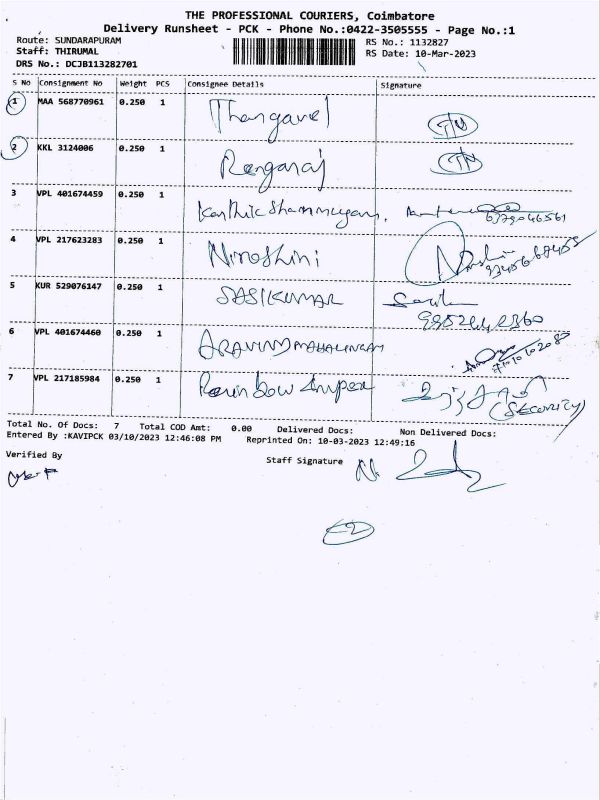 THE PROFESSIONAL COURIERS, Coimbatore
Delivery Runsheet - PCK - Phone No.:0422-3505555 - Page No.:1
Route: SUNDARAPURAM RS No.: 1132827
Staff: THIRUMAL RS Date: 10-Mar-2023
DRS No.: DCJB113282701
S No Consignment No Weight PCS Consignee Details Signature
1 MAA 568770961 0.250 1 Thangavel
2 KKL 3124006 0.250 1 Rengaraj
3 VPL 401674459 0.250 1 Karthik Shanmugam.
4 VPL 217623283 0.250 1 Niroshini
5 KUR 529076147 0.250 1 SASIKUMAR
6 VPL 401674460 0.250 1 ARAVIND MAHALINGAM
7 VPL 217185984 0.250 1 Rainbow Impex
(SECURITY)
Total No. Of Docs: 7 Total COD Amt: 0.00 Delivered Docs: Non Delivered Docs:
Entered By :KAVIPCK 03/10/2023 12:46:08 PM Reprinted On: 10-03-2023 12:49:16
Verified By Staff Signature